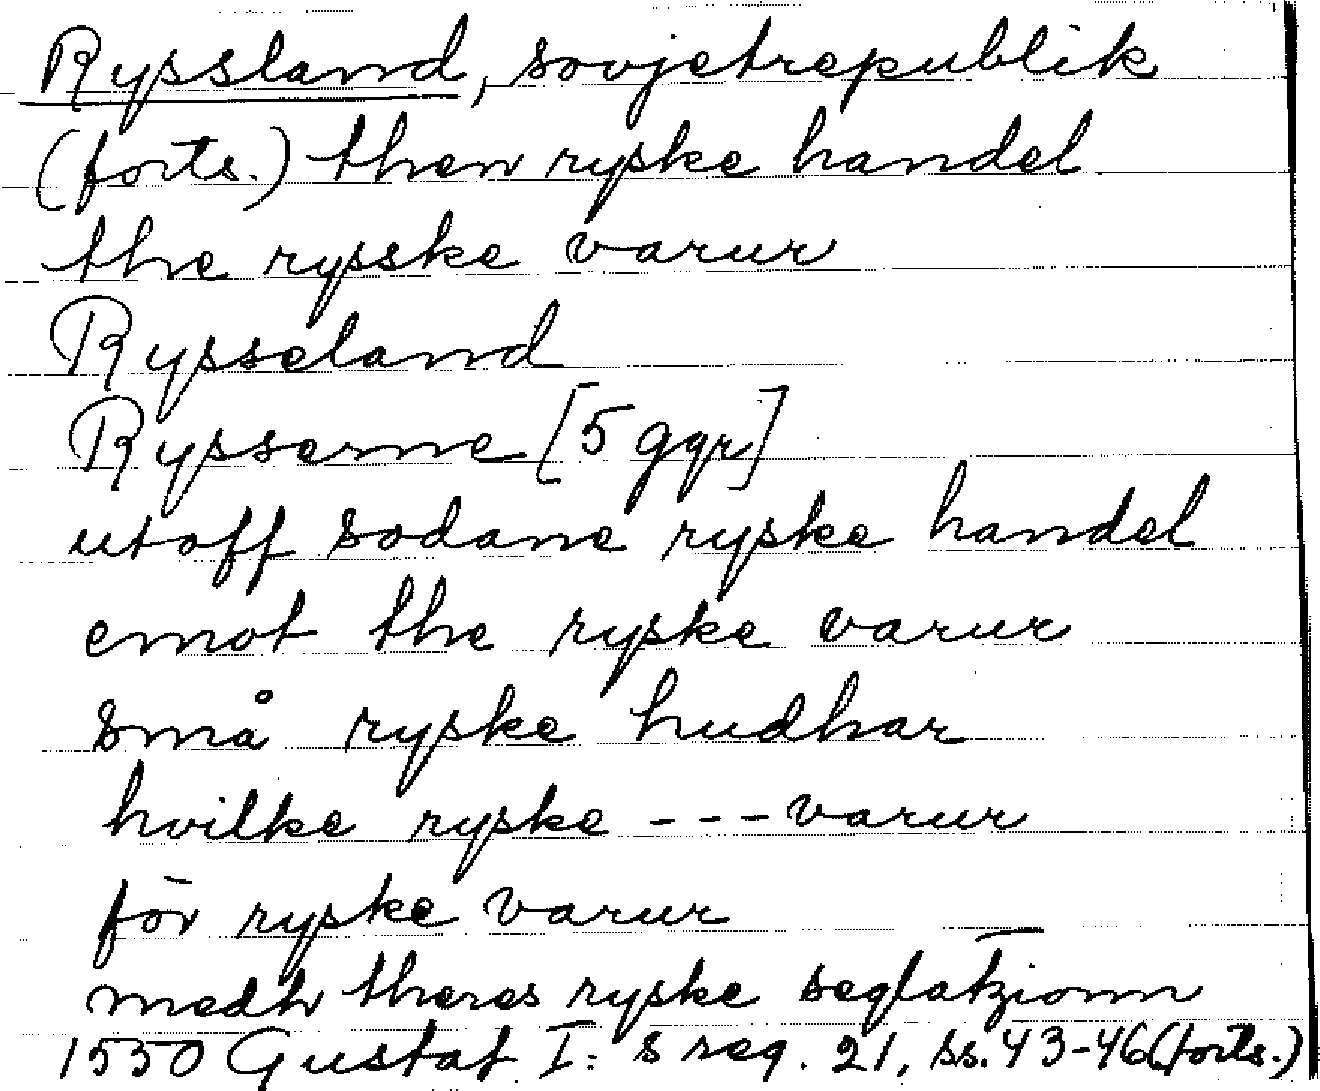 Ryssland, sovjetrepublik
(forts.) then ryske handel
the rysske varur
Rysseland
Rysserne [5 ggr]
utoff sodane ryske handel
emot the ryske varur
små ryske hudhar
hvilke ryske --- varur
för ryske varur
medh theres ryske seglatzionn
1550 Gustaf I:s reg. 21, ss. 43-46 (forts.)